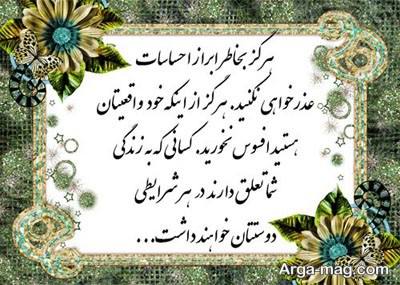 هرگز بخاطر ابراز احساسات
عذرخواهی نکنید. هرگز از اینکه خود واقعیتان
هستید افسوس نخورید. کسانی که به زندگی
شما تعلق دارند در هر شرایطی
دوستتان خواهند داشت...
Arga-mag.com